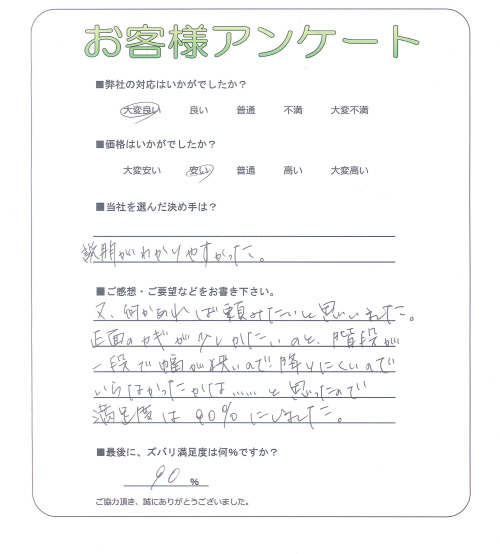 お客様アンケート
■弊社の対応はいかがでしたか？
大変良い 良い 普通 不満 大変不満
■価格はいかがでしたか？
大変安い 安い 普通 高い 大変高い
■当社を選んだ決め手は？
説明がわかりやすかった。
■ご感想・ご要望などをお書き下さい。
又、何かあれば頼みたいと思いました。
正面のカギが少しかたいのと、階段が
一段で幅が狭いので降りにくいので
いらなかったかな……と思ったので
満足度は90%にしました。
■最後に、ズバリ満足度は何%ですか？
90 %
ご協力頂き、誠にありがとうございました。